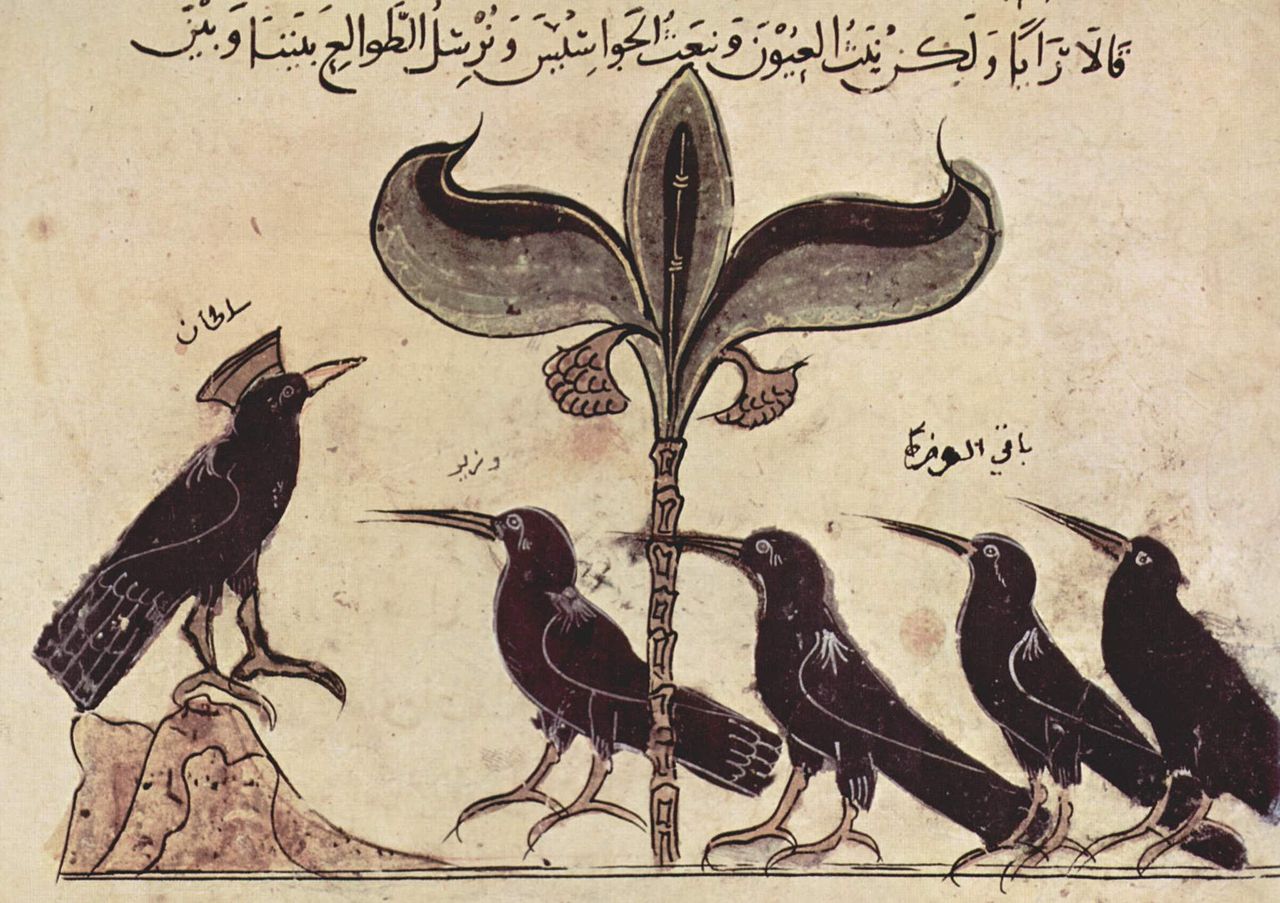 قَالَا رَايًا وَلَكِنْ نَبُثُّ العُيُوْنَ وَنَبعَثُ الجَوَاسِيْسَ وَنُرْسِلُ الطَّوَالِعَ بَيْنَنَا وَبَيْنَ
سلطان
باقي
وزير